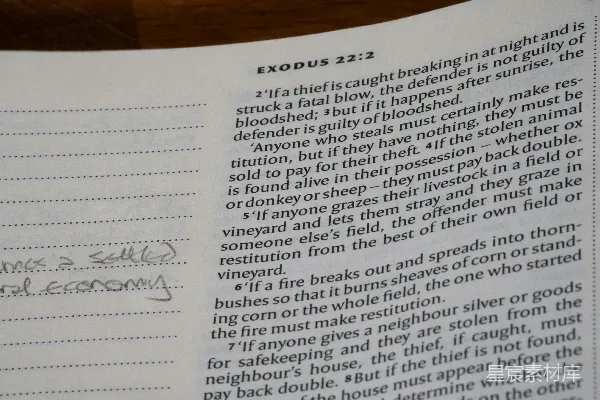 EXODUS 22:2
2 ‘If a thief is caught breaking in at night and is
struck a fatal blow, the defender is not guilty of
bloodshed; 3 but if it happens after sunrise, the
defender is guilty of bloodshed.
‘Anyone who steals must certainly make res-
titution, but if they have nothing, they must be
sold to pay for their theft. 4 If the stolen animal
is found alive in their possession – whether ox
or donkey or sheep – they must pay back double.
5 ‘If anyone grazes their livestock in a field or
vineyard and lets them stray and they graze in
someone else’s field, the offender must make
restitution from the best of their own field or
vineyard.
6 ‘If a fire breaks out and spreads into thorn-
bushes so that it burns sheaves of corn or stand-
ing corn or the whole field, the one who started
the fire must make restitution.
7 ‘If anyone gives a neighbour silver or goods
for safekeeping and they are stolen from the
neighbour’s house, the thief, if caught, must
pay back double. 8 But if the thief is not found,
of the house must appear before the
determine
on the other
a settled
economy
星宸素材库